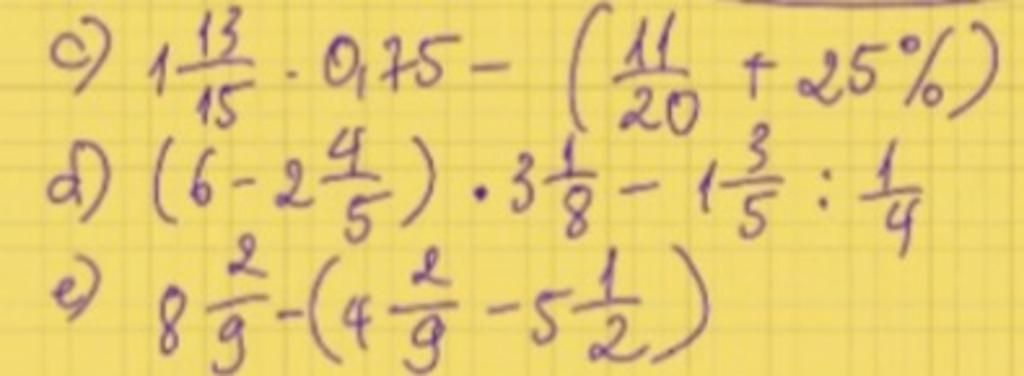 c) 1 13/15 · 0,75 - (11/20 + 25%)
d) (6 - 2 4/5) · 3 1/8 - 1 3/5 : 1/4
e) 8 2/9 - (4 2/9 - 5 1/2)